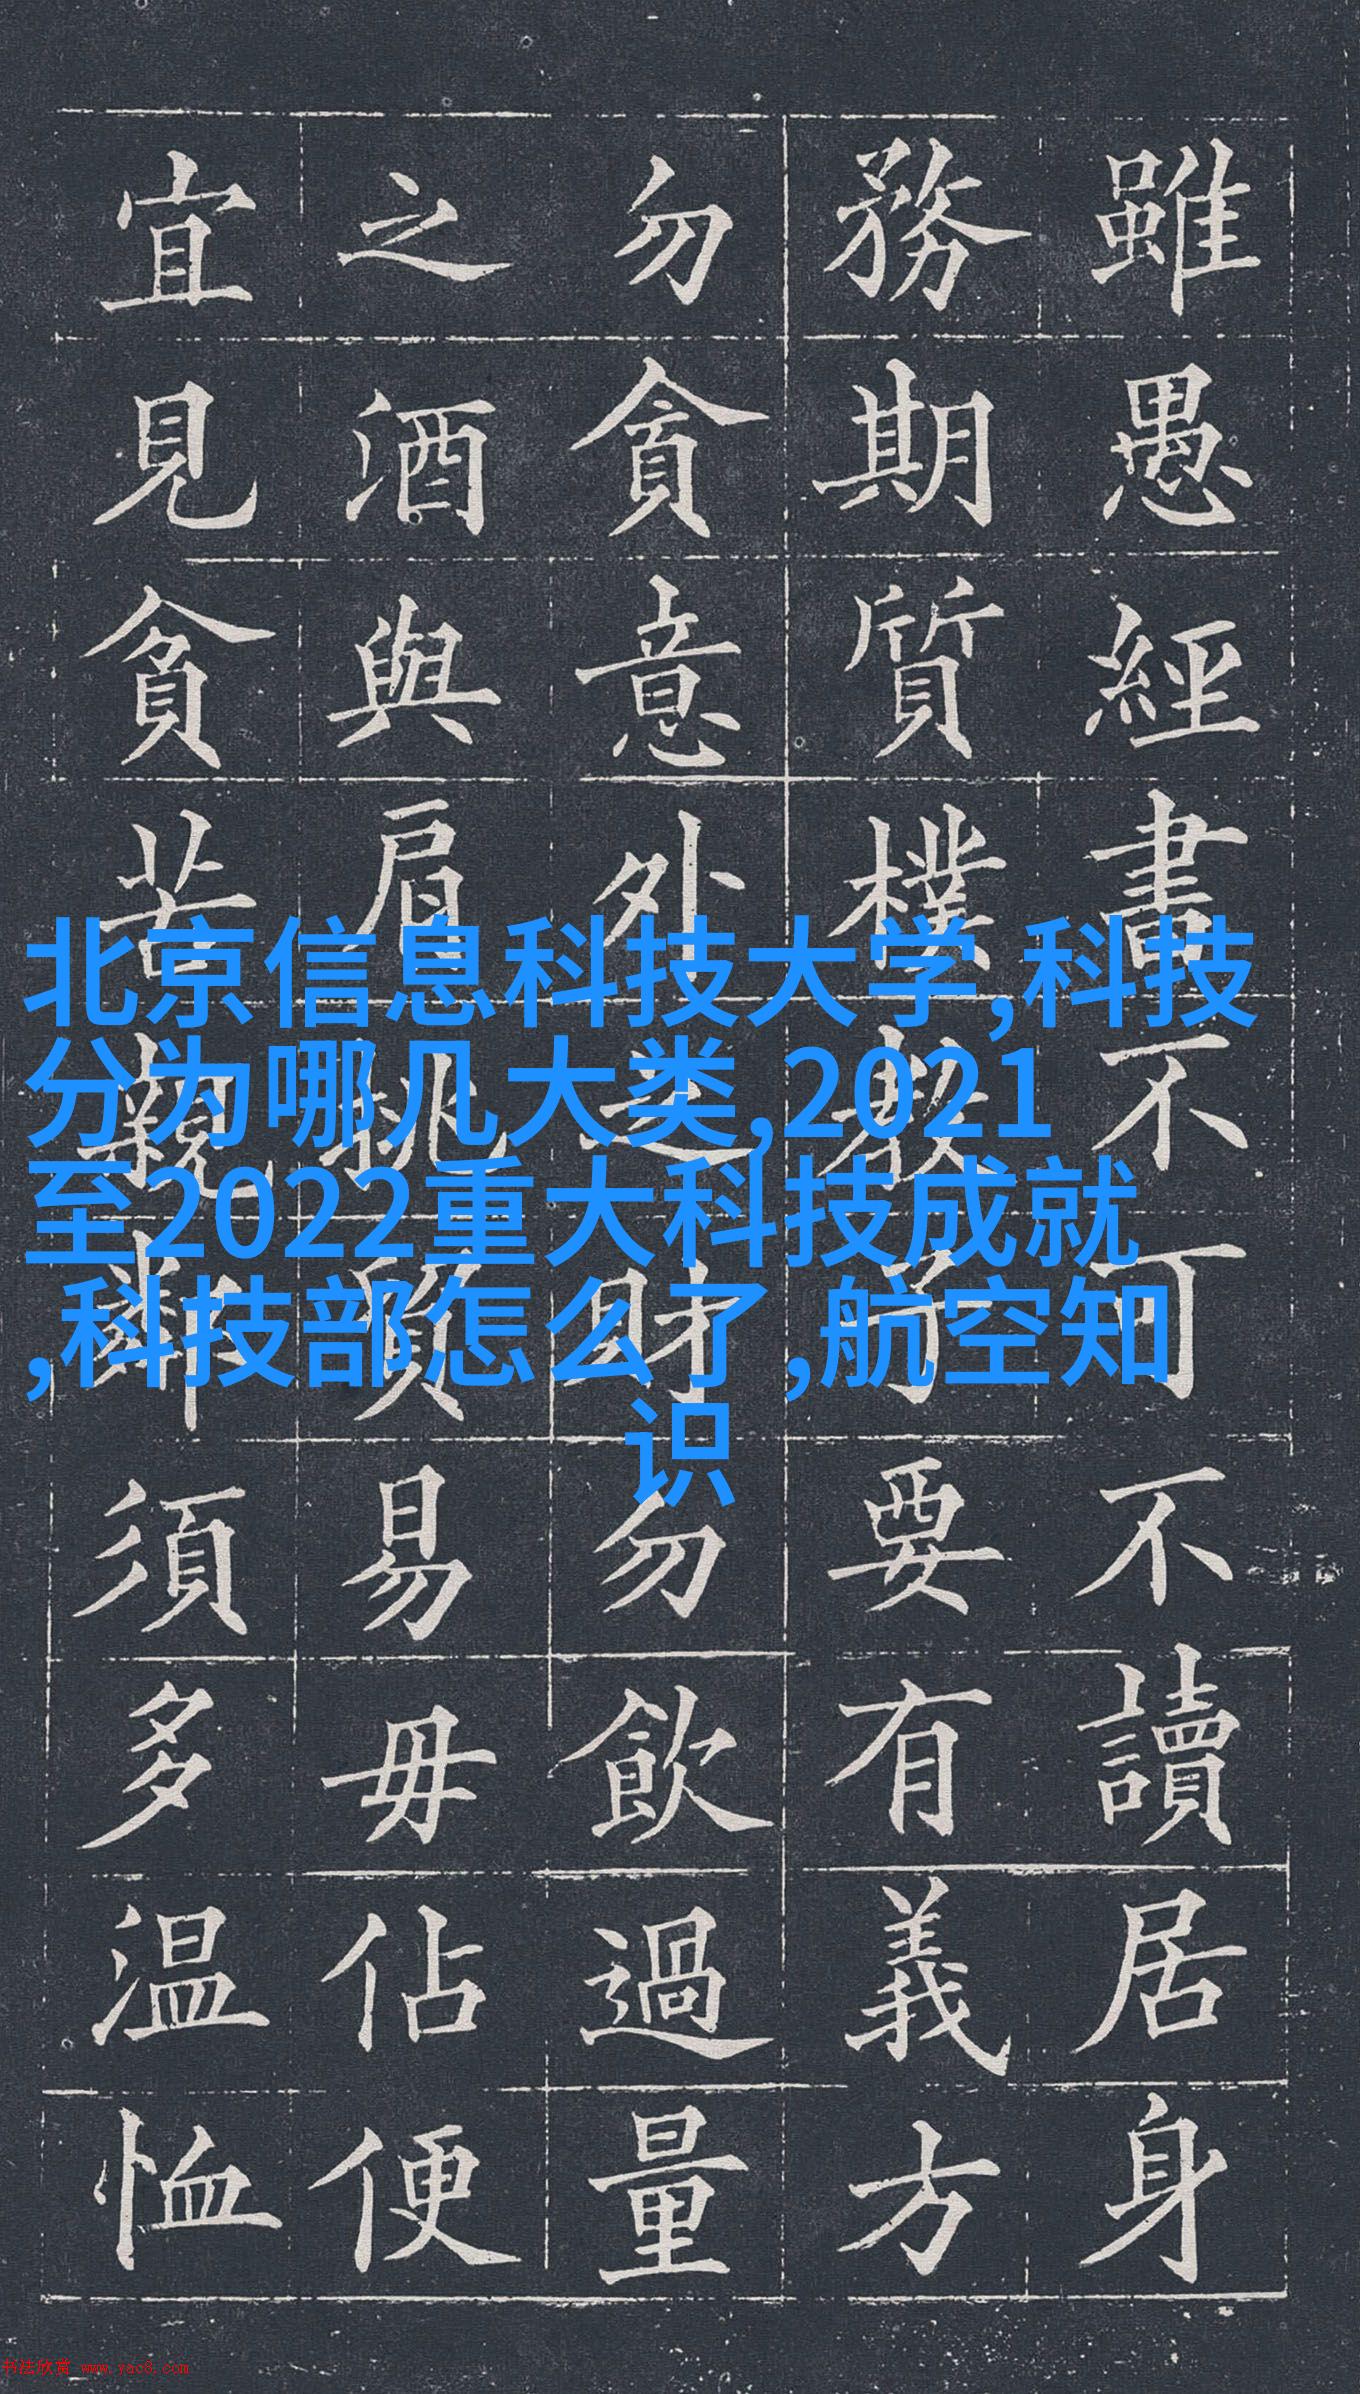 雖愚經書不可不讀居身
務期質樸教子要有義方
勿貪意外之財勿飲過量
之酒與肩挑貿易毋佔便
宜見貧苦親鄰須多温恤
北京信息科技大学,科技
分为哪几大类,2021
至2022重大科技成就
,科技部怎么了,航空知
识
书法欣赏 www.yac8.com